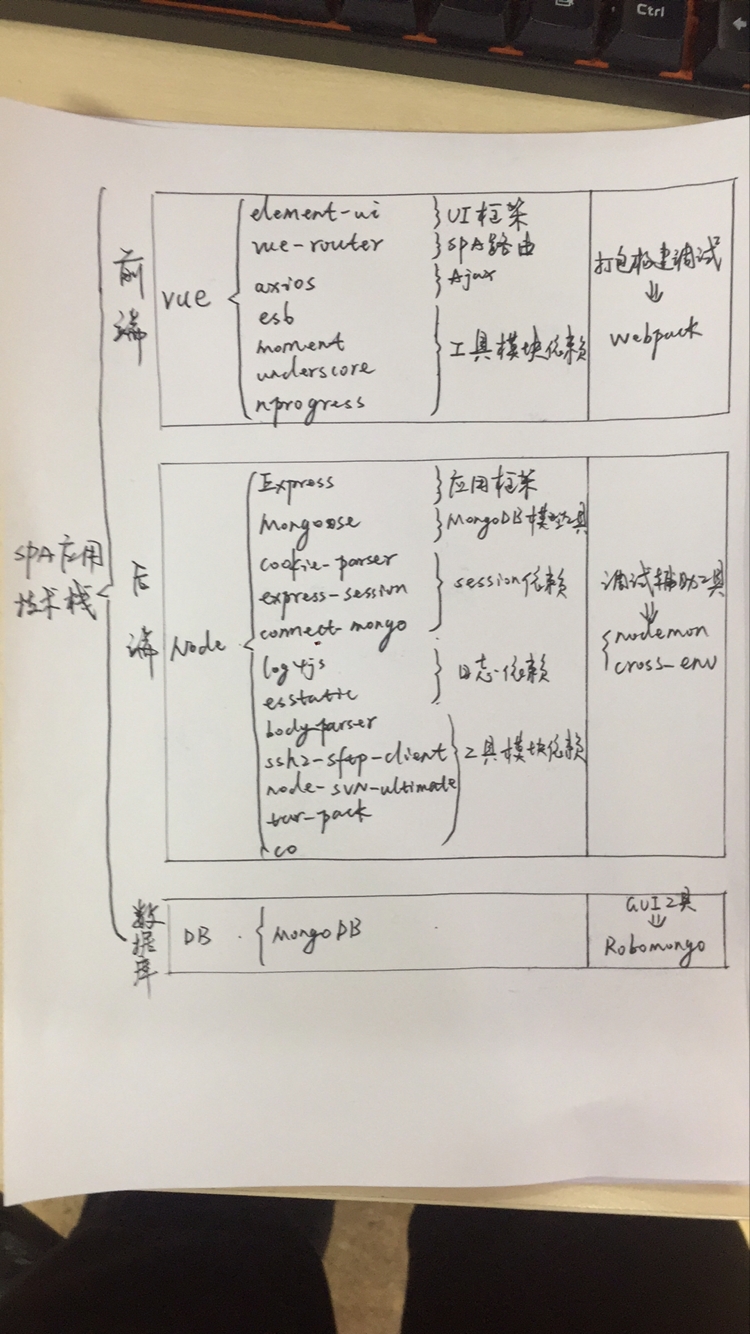 Ctrl
SPA应用
技术栈
前端
vue
element-ui }UI框架
vue-router }SPA路由
axios }Ajax
es6
moment
underscore
nprogress
工具模块依赖
打包构建调试
webpack
后端
Node
Express }应用框架
Mongoose }MongoDB模型工具
cookie-parser
express-session
connect-mongo
session依赖
log4js
esstatic
日志依赖
body-parser
ssh2-sftp-client
node-svn-ultimate
tar-pack
co
工具模块依赖
调试辅助工具
nodemon
cross-env
数据库
DB
MongoDB
GUI工具
Robomongo